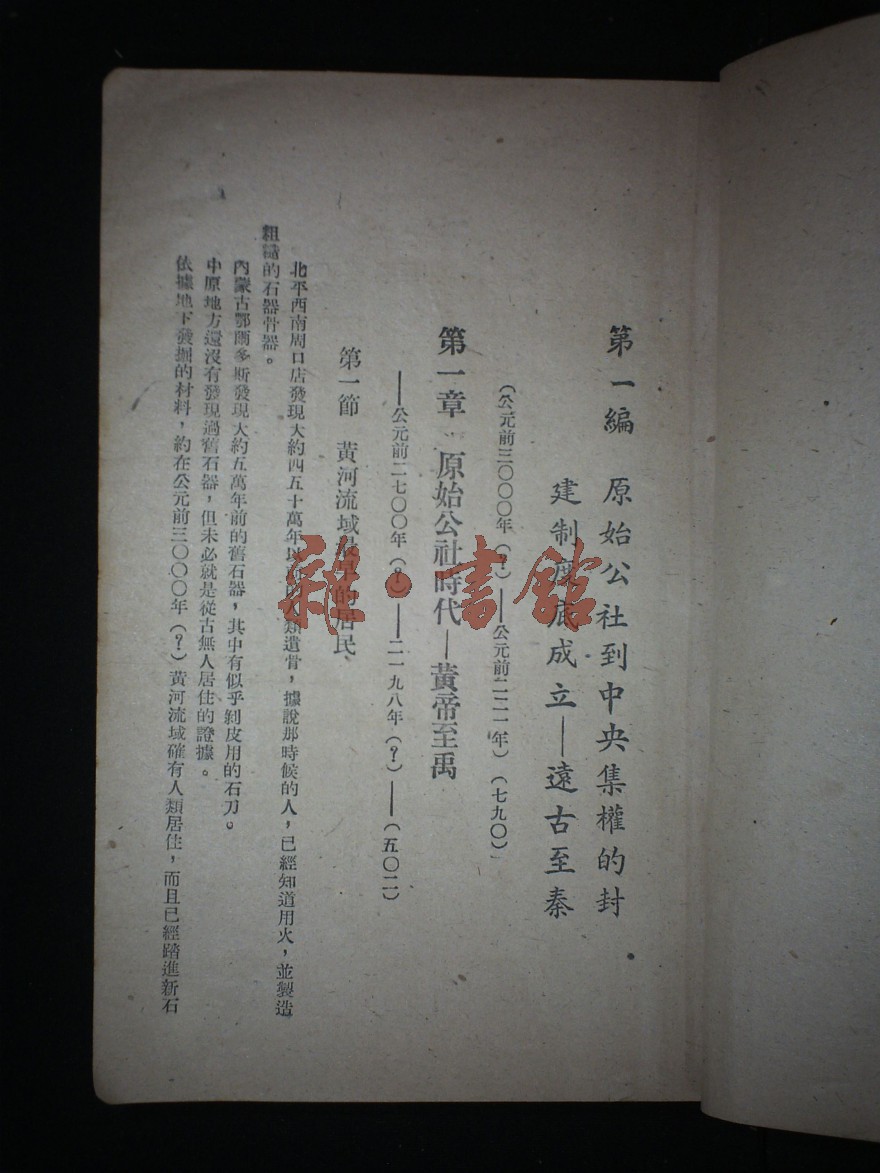 第一編　原始公社到中央集權的封
建制度底成立——遠古至秦
（公元前三〇〇〇年（？）——公元前二二一年）（七九〇）
第一章　原始公社時代—黃帝至禹
——公元前二七〇〇年（？）——二一九八年（？）——（五〇二）
第一節　黃河流域最早的居民
北平西南周口店發現大約四五十萬年以前的人類遺骨，據說那時候的人，已經知道用火，並製造
粗糙的石器骨器。
內蒙古鄂爾多斯發現大約五萬年前的舊石器，其中有似乎剝皮用的石刀。
中原地方還沒有發現過舊石器，但未必就是從古無人居住的證據。
依據地下發掘的材料，約在公元前三〇〇〇年（？）黃河流域確有人類居住，而且已經踏進新石
雜·書館